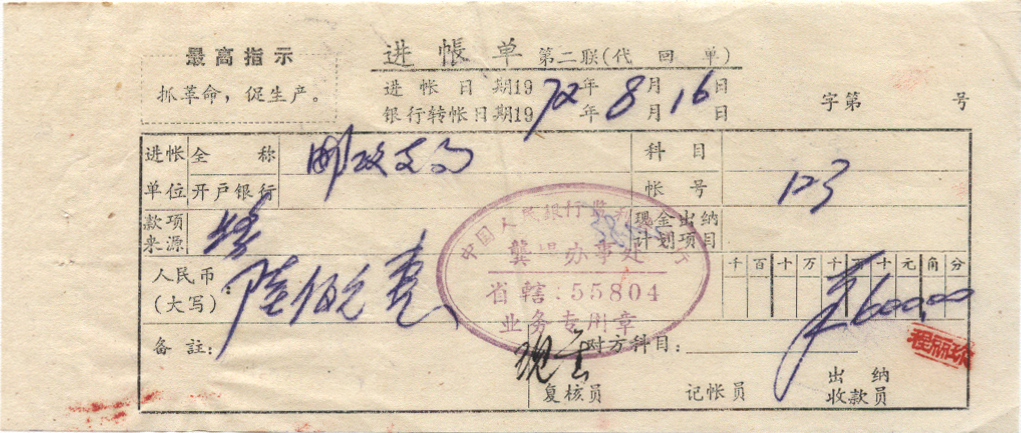 最高指示
抓革命，促生产。
进帐单 第二联(代回单)
进帐日期1972年8月16日
银行转帐日期19 年 月 日
字第 号
进帐单位 全称 邮政支局 科目
开户银行 帐号 123
款项来源 现金出纳计划项目
人民币(大写)： 陆佰元
千百十万千百十元角分
¥600.00
备註： 现金 对方科目：
复核员 记帐员 出纳收款员
中国人民银行
龚场办事处
省辖：55804
业务专用章